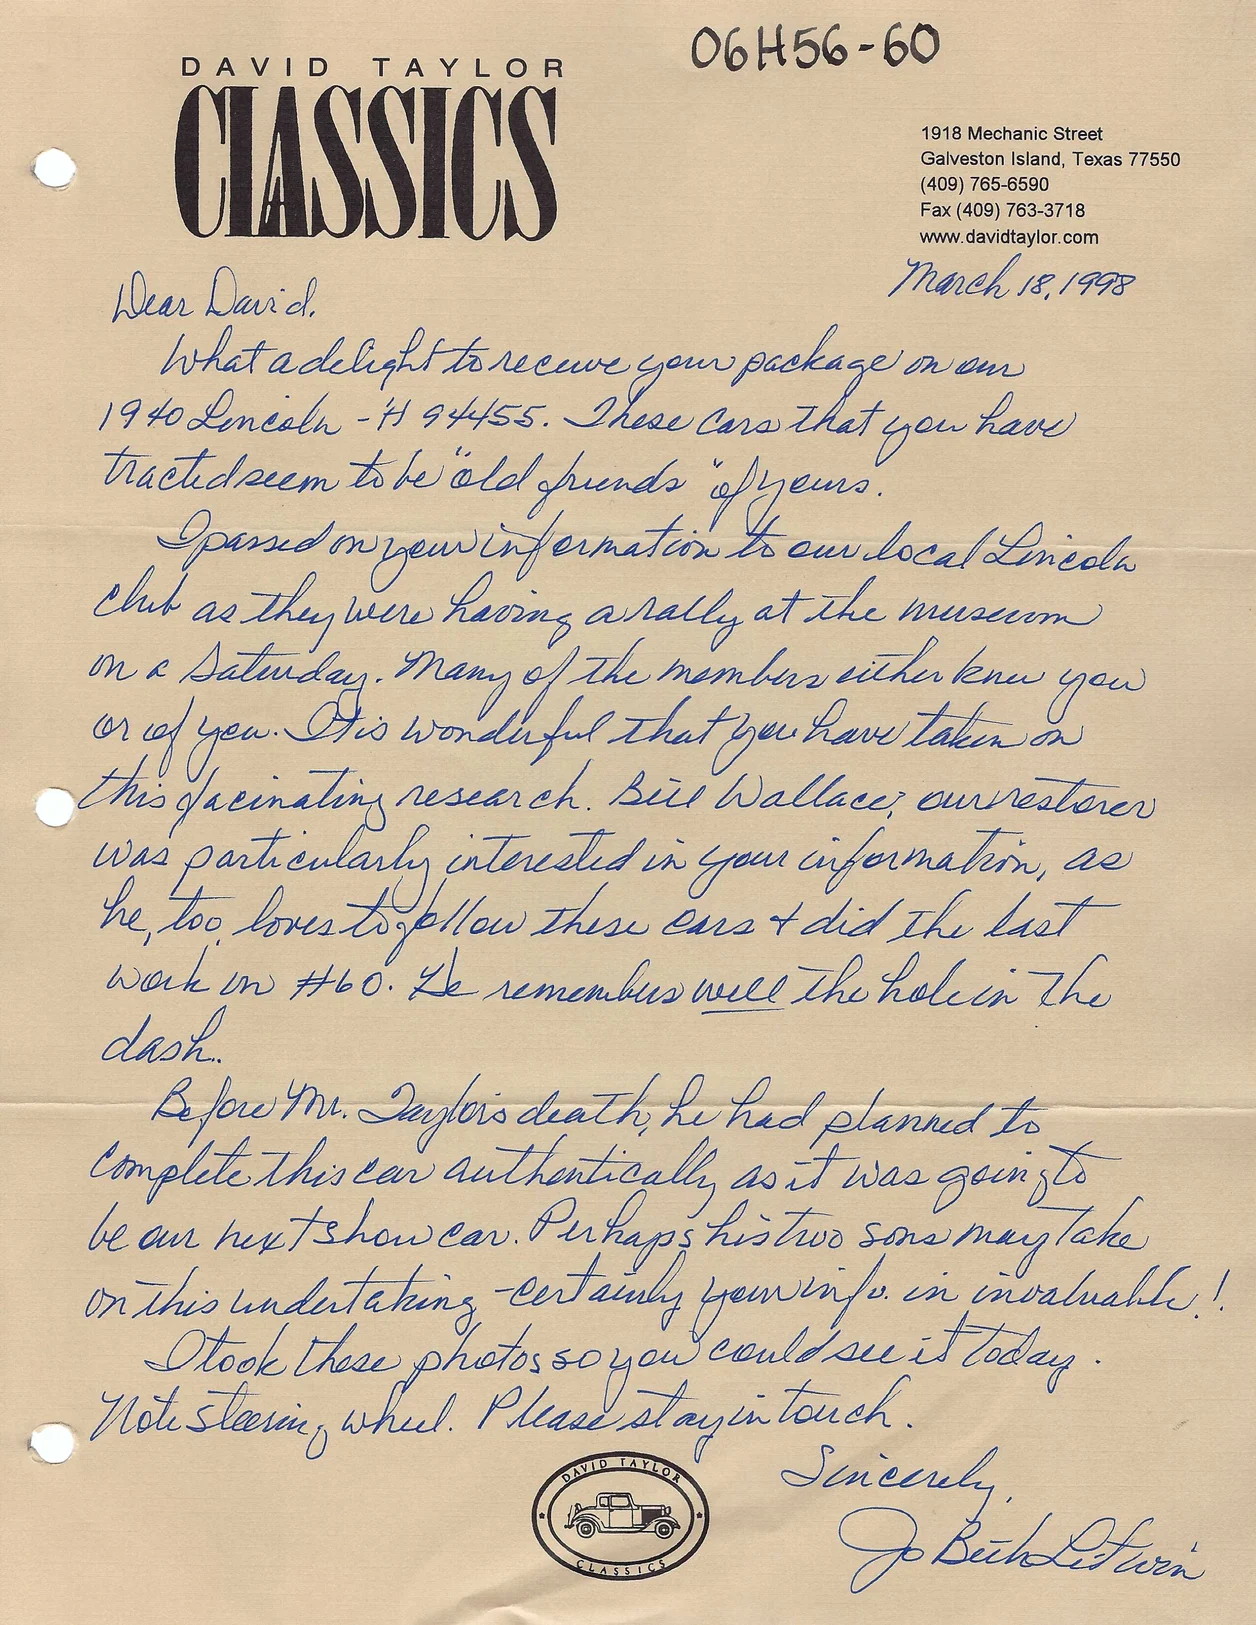 06H56-60
DAVID TAYLOR
CLASSICS
1918 Mechanic Street
Galveston Island, Texas 77550
(409) 765-6590
Fax (409) 763-3718
www.davidtaylor.com
March 18, 1998
Dear David,
What a delight to receive your package on our
1940 Lincoln - H 94455. These cars that you have
tracted seem to be "old friends" of yours.
I passed on your information to our local Lincoln
club as they were having a rally at the museum
on a Saturday. Many of the members either knew you
or of you. It is wonderful that you have taken on
this facinating research. Bill Wallace, our restorer
was particularly interested in your information, as
he, too, loves to follow these cars & did the last
work on #60. He remembers well the hole in the
dash..
Before Mr. Taylor's death, he had planned to
complete this car authentically as it was going to
be our next show car. Perhaps his two sons may take
on this undertaking - certainly your info. in invaluable!
I took these photos so you could see it today.
Note steering wheel. Please stay in touch.
Sincerely,
Jo Beth Litwin
DAVID TAYLOR
CLASSICS